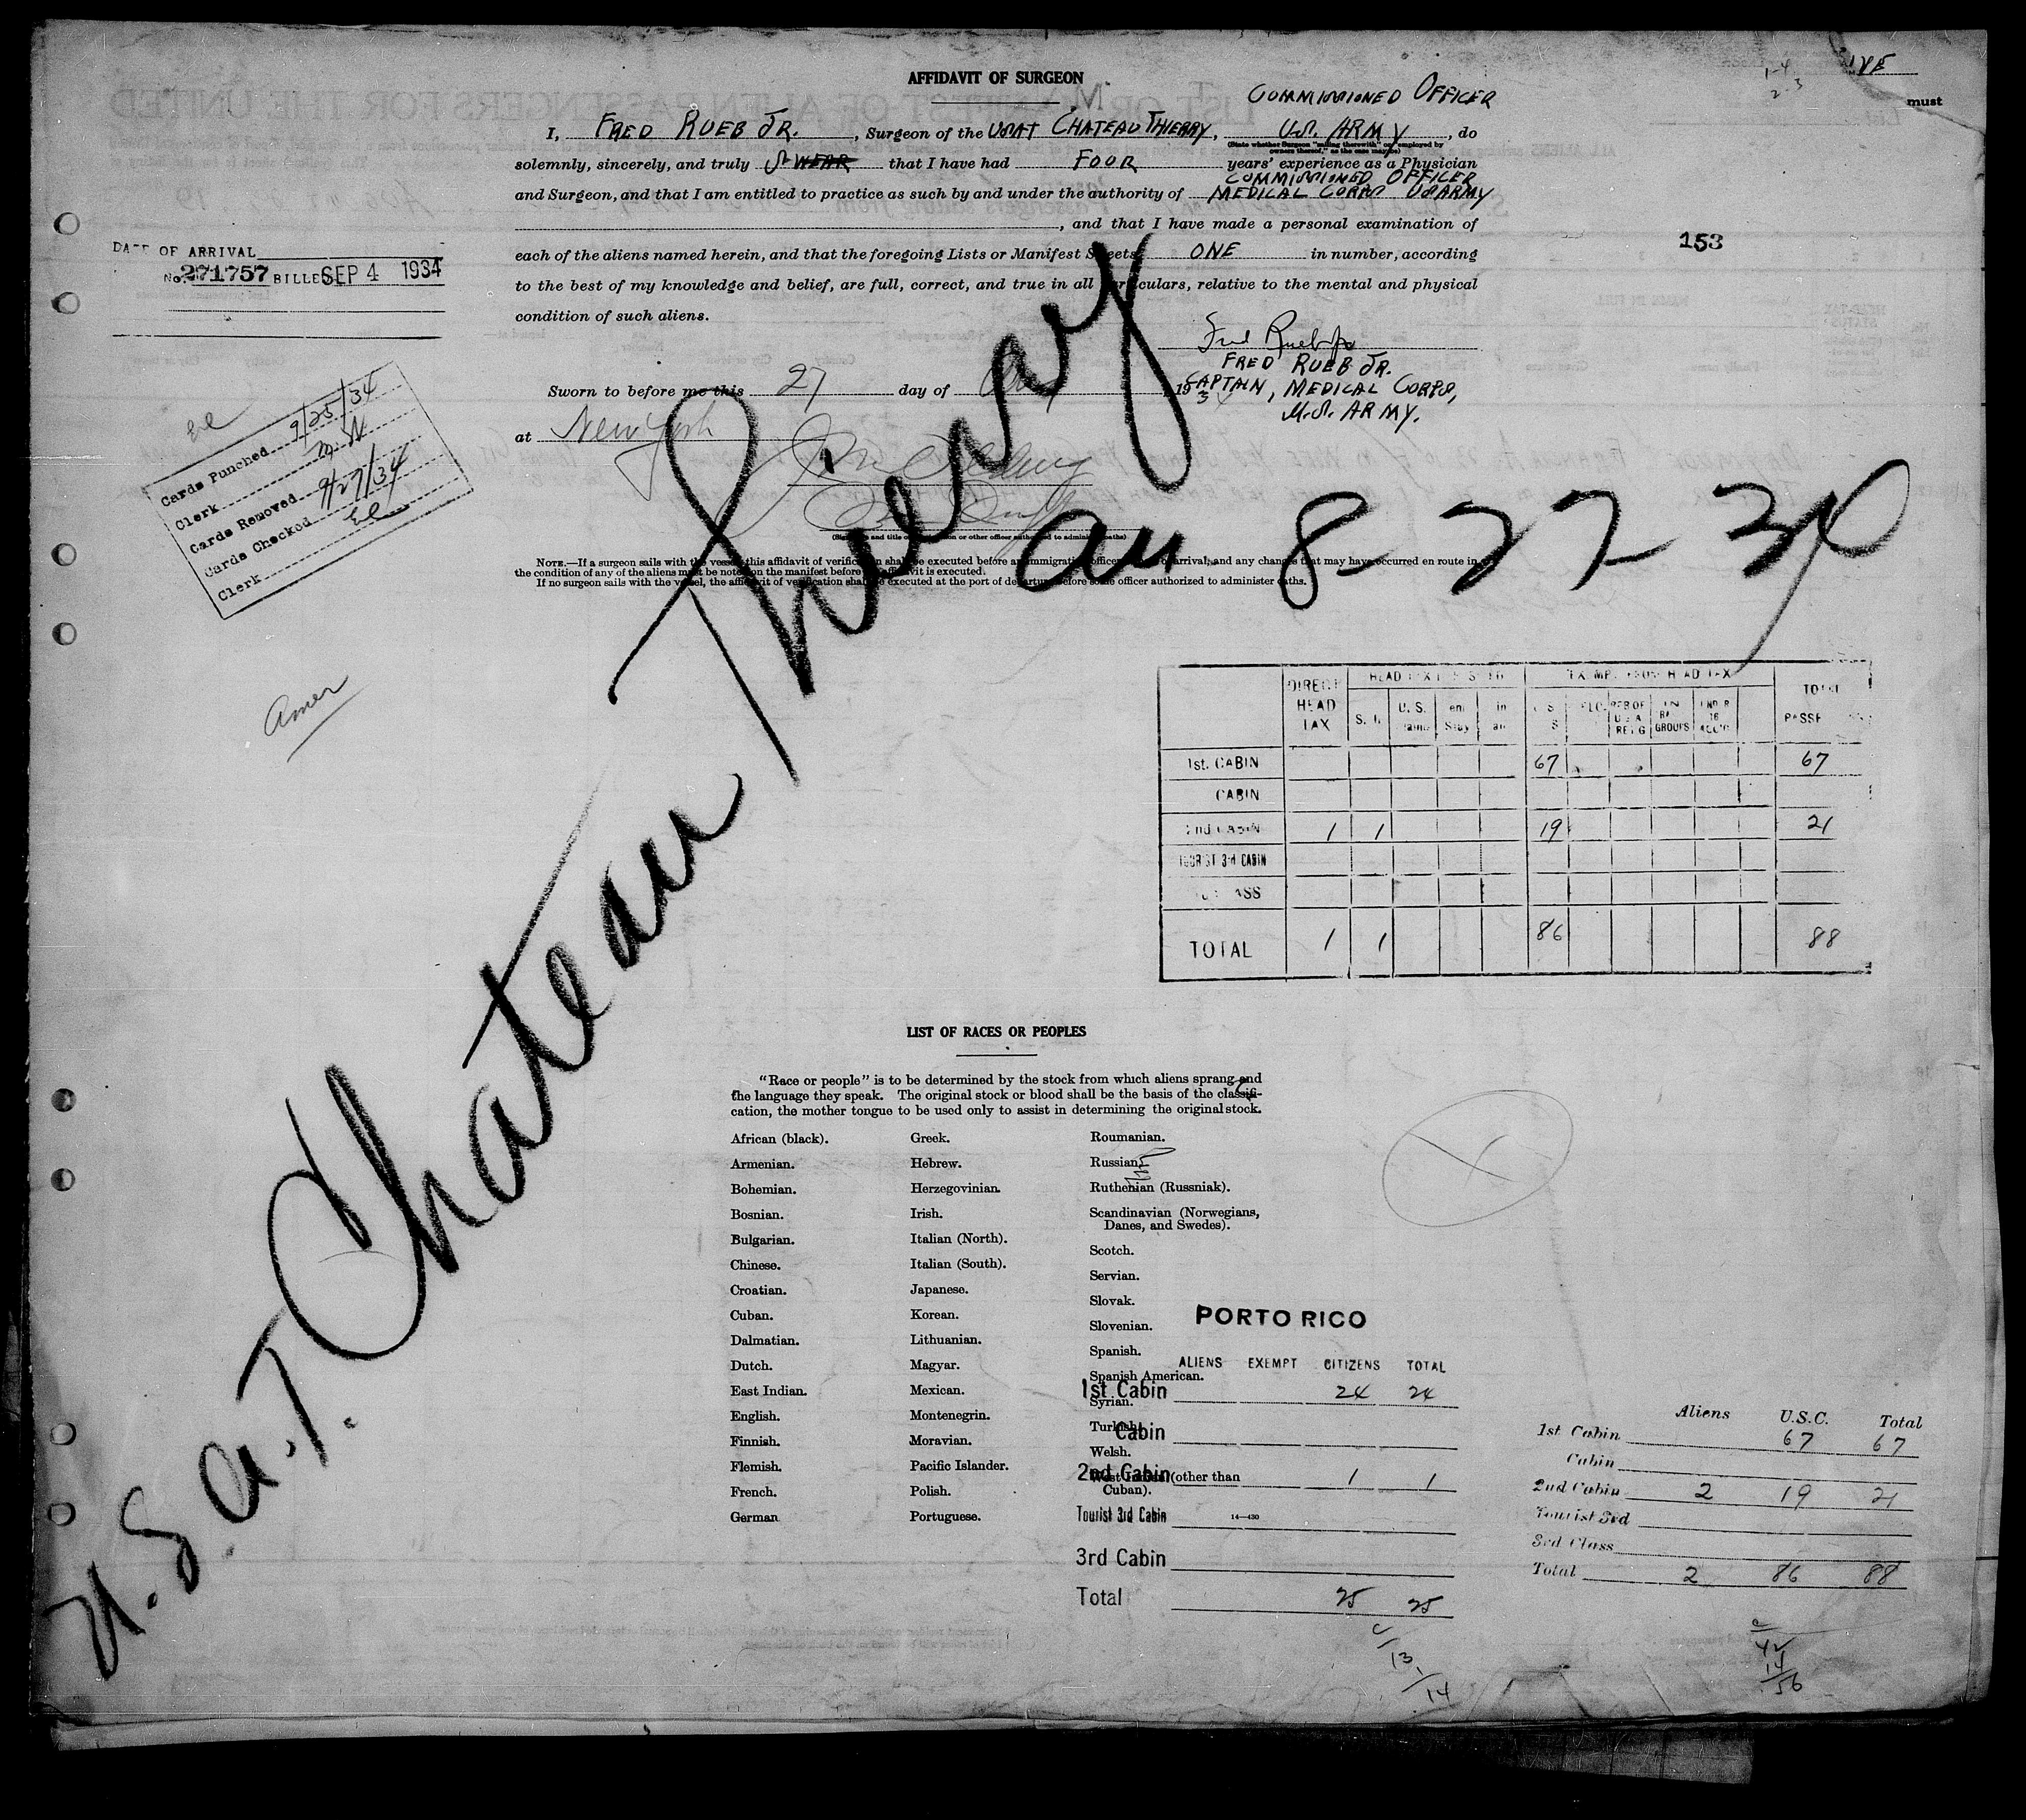 AFFIDAVIT OF SURGEON
COMMISSIONED OFFICER
must
I, FRED RUEB JR., Surgeon of the USAT CHATEAU THIERRY, U.S. ARMY, do
(State whether Surgeon "sailing therewith" or "employed by
owners thereof," as the case may be)
solemnly, sincerely, and truly SWEAR that I have had FOUR years' experience as a Physician
COMMISSIONED OFFICER
and Surgeon, and that I am entitled to practice as such by and under the authority of MEDICAL CORPS US ARMY
, and that I have made a personal examination of
each of the aliens named herein, and that the foregoing Lists or Manifest Sheets, ONE in number, according
to the best of my knowledge and belief, are full, correct, and true in all particulars, relative to the mental and physical
condition of such aliens.
153
DATE OF ARRIVAL
No. 271757 BILLED SEP 4 1934
Fred Rueb Jr
FRED RUEB JR.
CAPTAIN, MEDICAL CORPS,
U.S. ARMY.
Sworn to before me this 27 day of Aug, 1934
at New York
(Signature and title of immigration or other officer authorized to administer oaths)
NOTE.—If a surgeon sails with the vessel, this affidavit of verification shall be executed before an immigration officer of arrival, and any changes that may have occurred en route in
the condition of any of the aliens must be noted on the manifest before the affidavit is executed.
If no surgeon sails with the vessel, the affidavit of verification shall be executed at the port of departure before some officer authorized to administer oaths.
Cards Punched 9/25/34
Clerk M.W
Cards Removed 9/27/34
Cards Checked
Clerk
Amer
U.S.A.T. Chateau Thierry
arr 8-27-34
DIRECT HEAD TAX
TOTAL
1st. CABIN 67 67
CABIN
2nd CABIN 1 1 19 21
TOURIST 3rd CABIN
TOTAL 1 1 86 88
LIST OF RACES OR PEOPLES
"Race or people" is to be determined by the stock from which aliens sprang and
the language they speak. The original stock or blood shall be the basis of the classifi-
cation, the mother tongue to be used only to assist in determining the original stock.
African (black).
Armenian.
Bohemian.
Bosnian.
Bulgarian.
Chinese.
Croatian.
Cuban.
Dalmatian.
Dutch.
East Indian.
English.
Finnish.
Flemish.
French.
German
Greek.
Hebrew.
Herzegovinian.
Irish.
Italian (North).
Italian (South).
Japanese.
Korean.
Lithuanian.
Magyar.
Mexican.
Montenegrin.
Moravian.
Pacific Islander.
Polish.
Portuguese.
Roumanian.
Russian.
Ruthenian (Russniak).
Scandinavian (Norwegians,
Danes, and Swedes).
Scotch.
Servian.
Slovak.
Slovenian.
Spanish.
Spanish American.
Syrian.
Turkish.
Welsh.
West Indian (other than
Cuban).
14—430
PORTO RICO
ALIENS EXEMPT CITIZENS TOTAL
1st Cabin 24 24
Cabin
2nd Cabin 1 1
Tourist 3rd Cabin
3rd Cabin
Total 25 25
13
14
Aliens U.S.C. Total
1st Cabin 67 67
Cabin
2nd Cabin 2 19 21
Tourist 3rd
3rd Class
Total 2 86 88
42
14
56